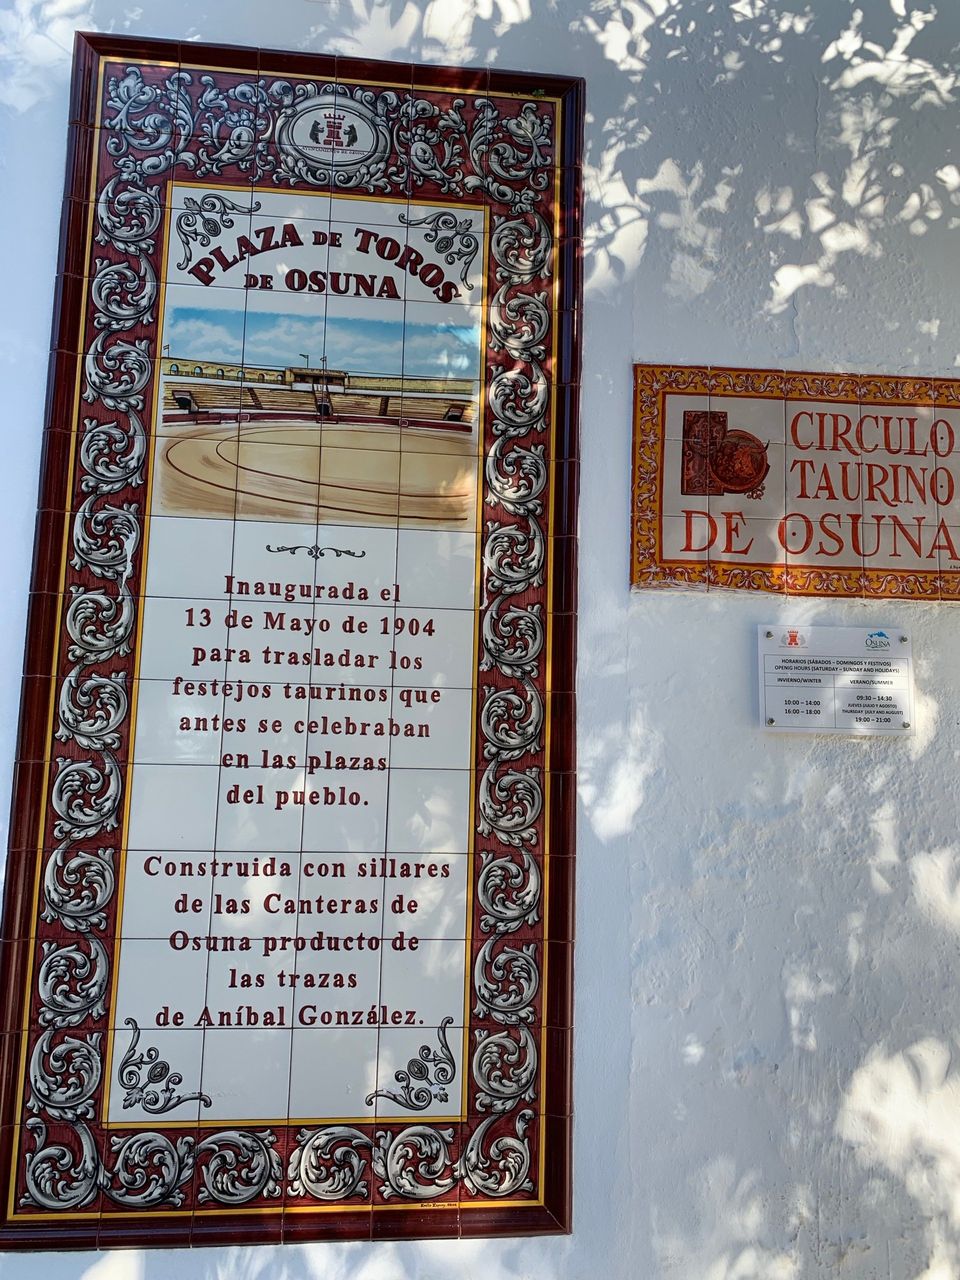 AYUNTAMIENTO DE OSUNA
PLAZA DE TOROS
DE OSUNA
Inaugurada el
13 de Mayo de 1904
para trasladar los
festejos taurinos que
antes se celebraban
en las plazas
del pueblo.
Construida con sillares
de las Canteras de
Osuna producto de
las trazas
de Aníbal González.
CIRCULO
TAURINO
DE OSUNA
OSUNA
HORARIOS (SÁBADOS – DOMINGOS Y FESTIVOS)
OPENIG HOURS (SATURDAY – SUNDAY AND HOLIDAYS)
INVIERNO/WINTER
10:00 – 14:00
16:00 – 18:00
VERANO/SUMMER
09:30 – 14:30
JUEVES (JULIO Y AGOSTO)
THURSDAY (JULY AND AUGUST)
19:00 – 21:00